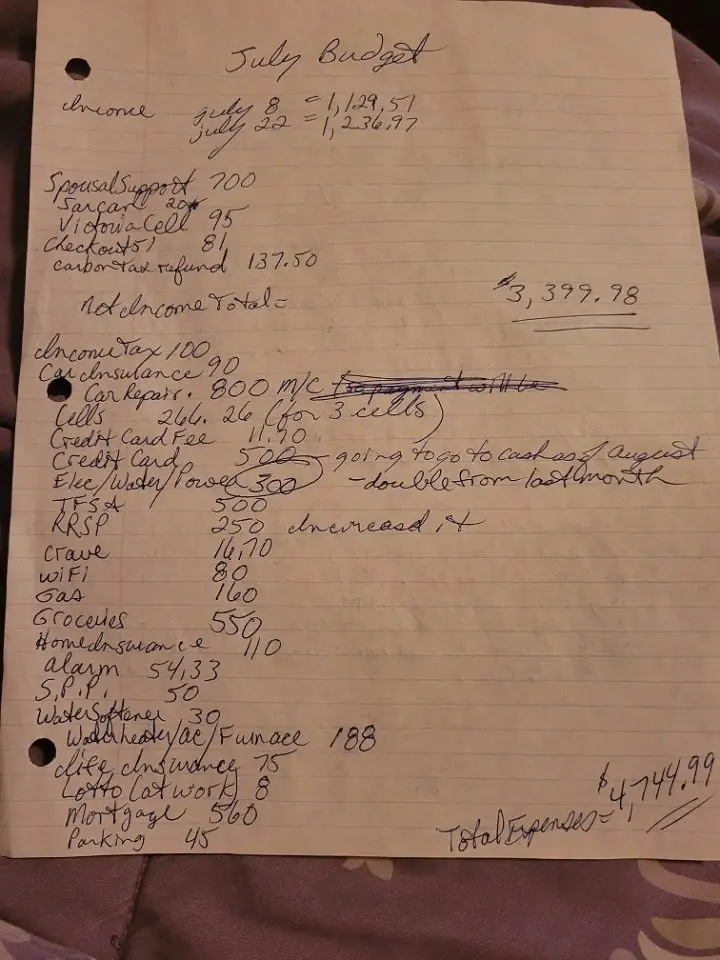 July Budget
Income july 8 = 1,129.51
july 22 = 1,236.97
Spousal Support 700
Sarcan 20
Victoria Cell 95
Checkout 51 81
carbon tax refund 137.50
Net Income Total = $3,399.98
Income Tax 100
Car Insurance 90
Car Repair. 800 m/c
Cells 266.26 (for 3 cells)
Credit Card Fee 11.70
Credit Card 500 - going to go to cash as of August
Elec/Water/Power 300 - double from last month
TFSA 500
RRSP 250 Increased it
Crave 16.70
WiFi 80
Gas 160
Groceries 550
Home Insurance 110
Alarm 54.33
S.P.P. 50
Water Softener 30
Waterheater/ac/Furnace 188
Life Insurance 75
Lotto (at work) 8
Mortgage 560
Parking 45
Total Expenses = $4,744.99